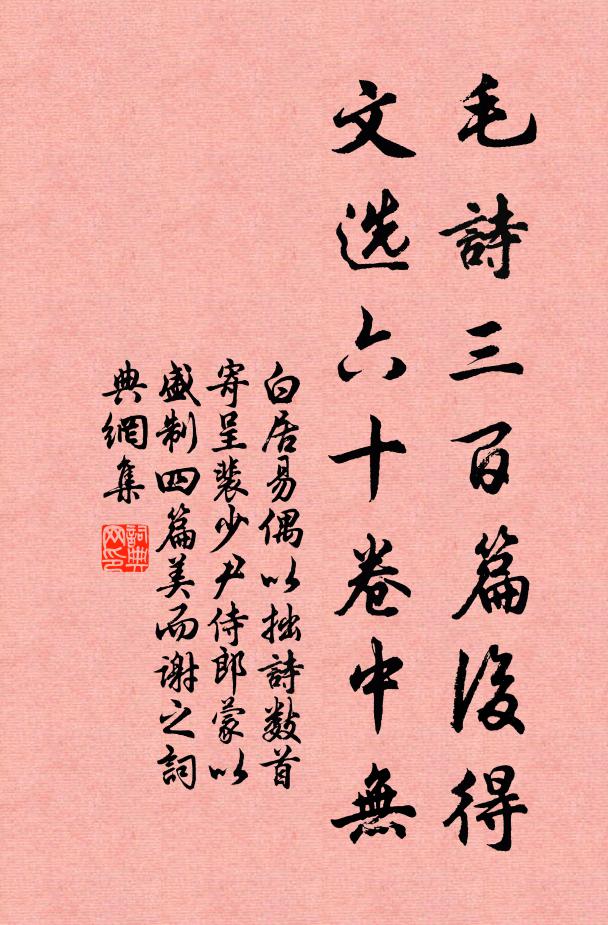 毛詩三百篇後得
文选六十卷中無
白居易偶以拙詩数首
寄呈裴少尹侍郎蒙以
盛制四篇美而谢之詞
典網集
詞典網印